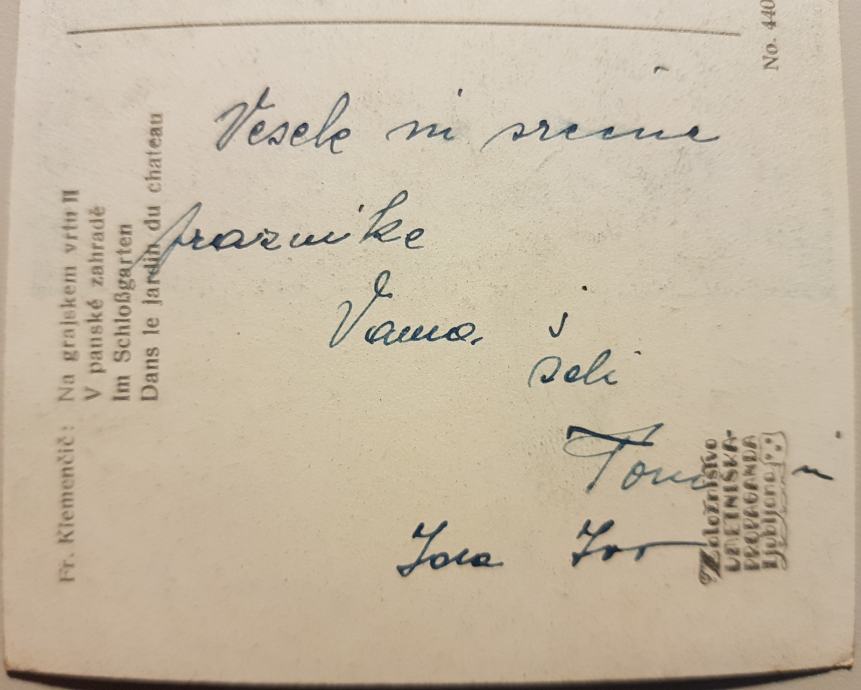 No. 440
Vesele in srečne
praznike
Vama
želi
Fr. Klemenčič: Na grajskem vrtu II
V panské zahradě
Im Schloßgarten
Dans le jardin du chateau
Založništvo
UMETNIŠKA
PROPAGANDA
Ljubljana